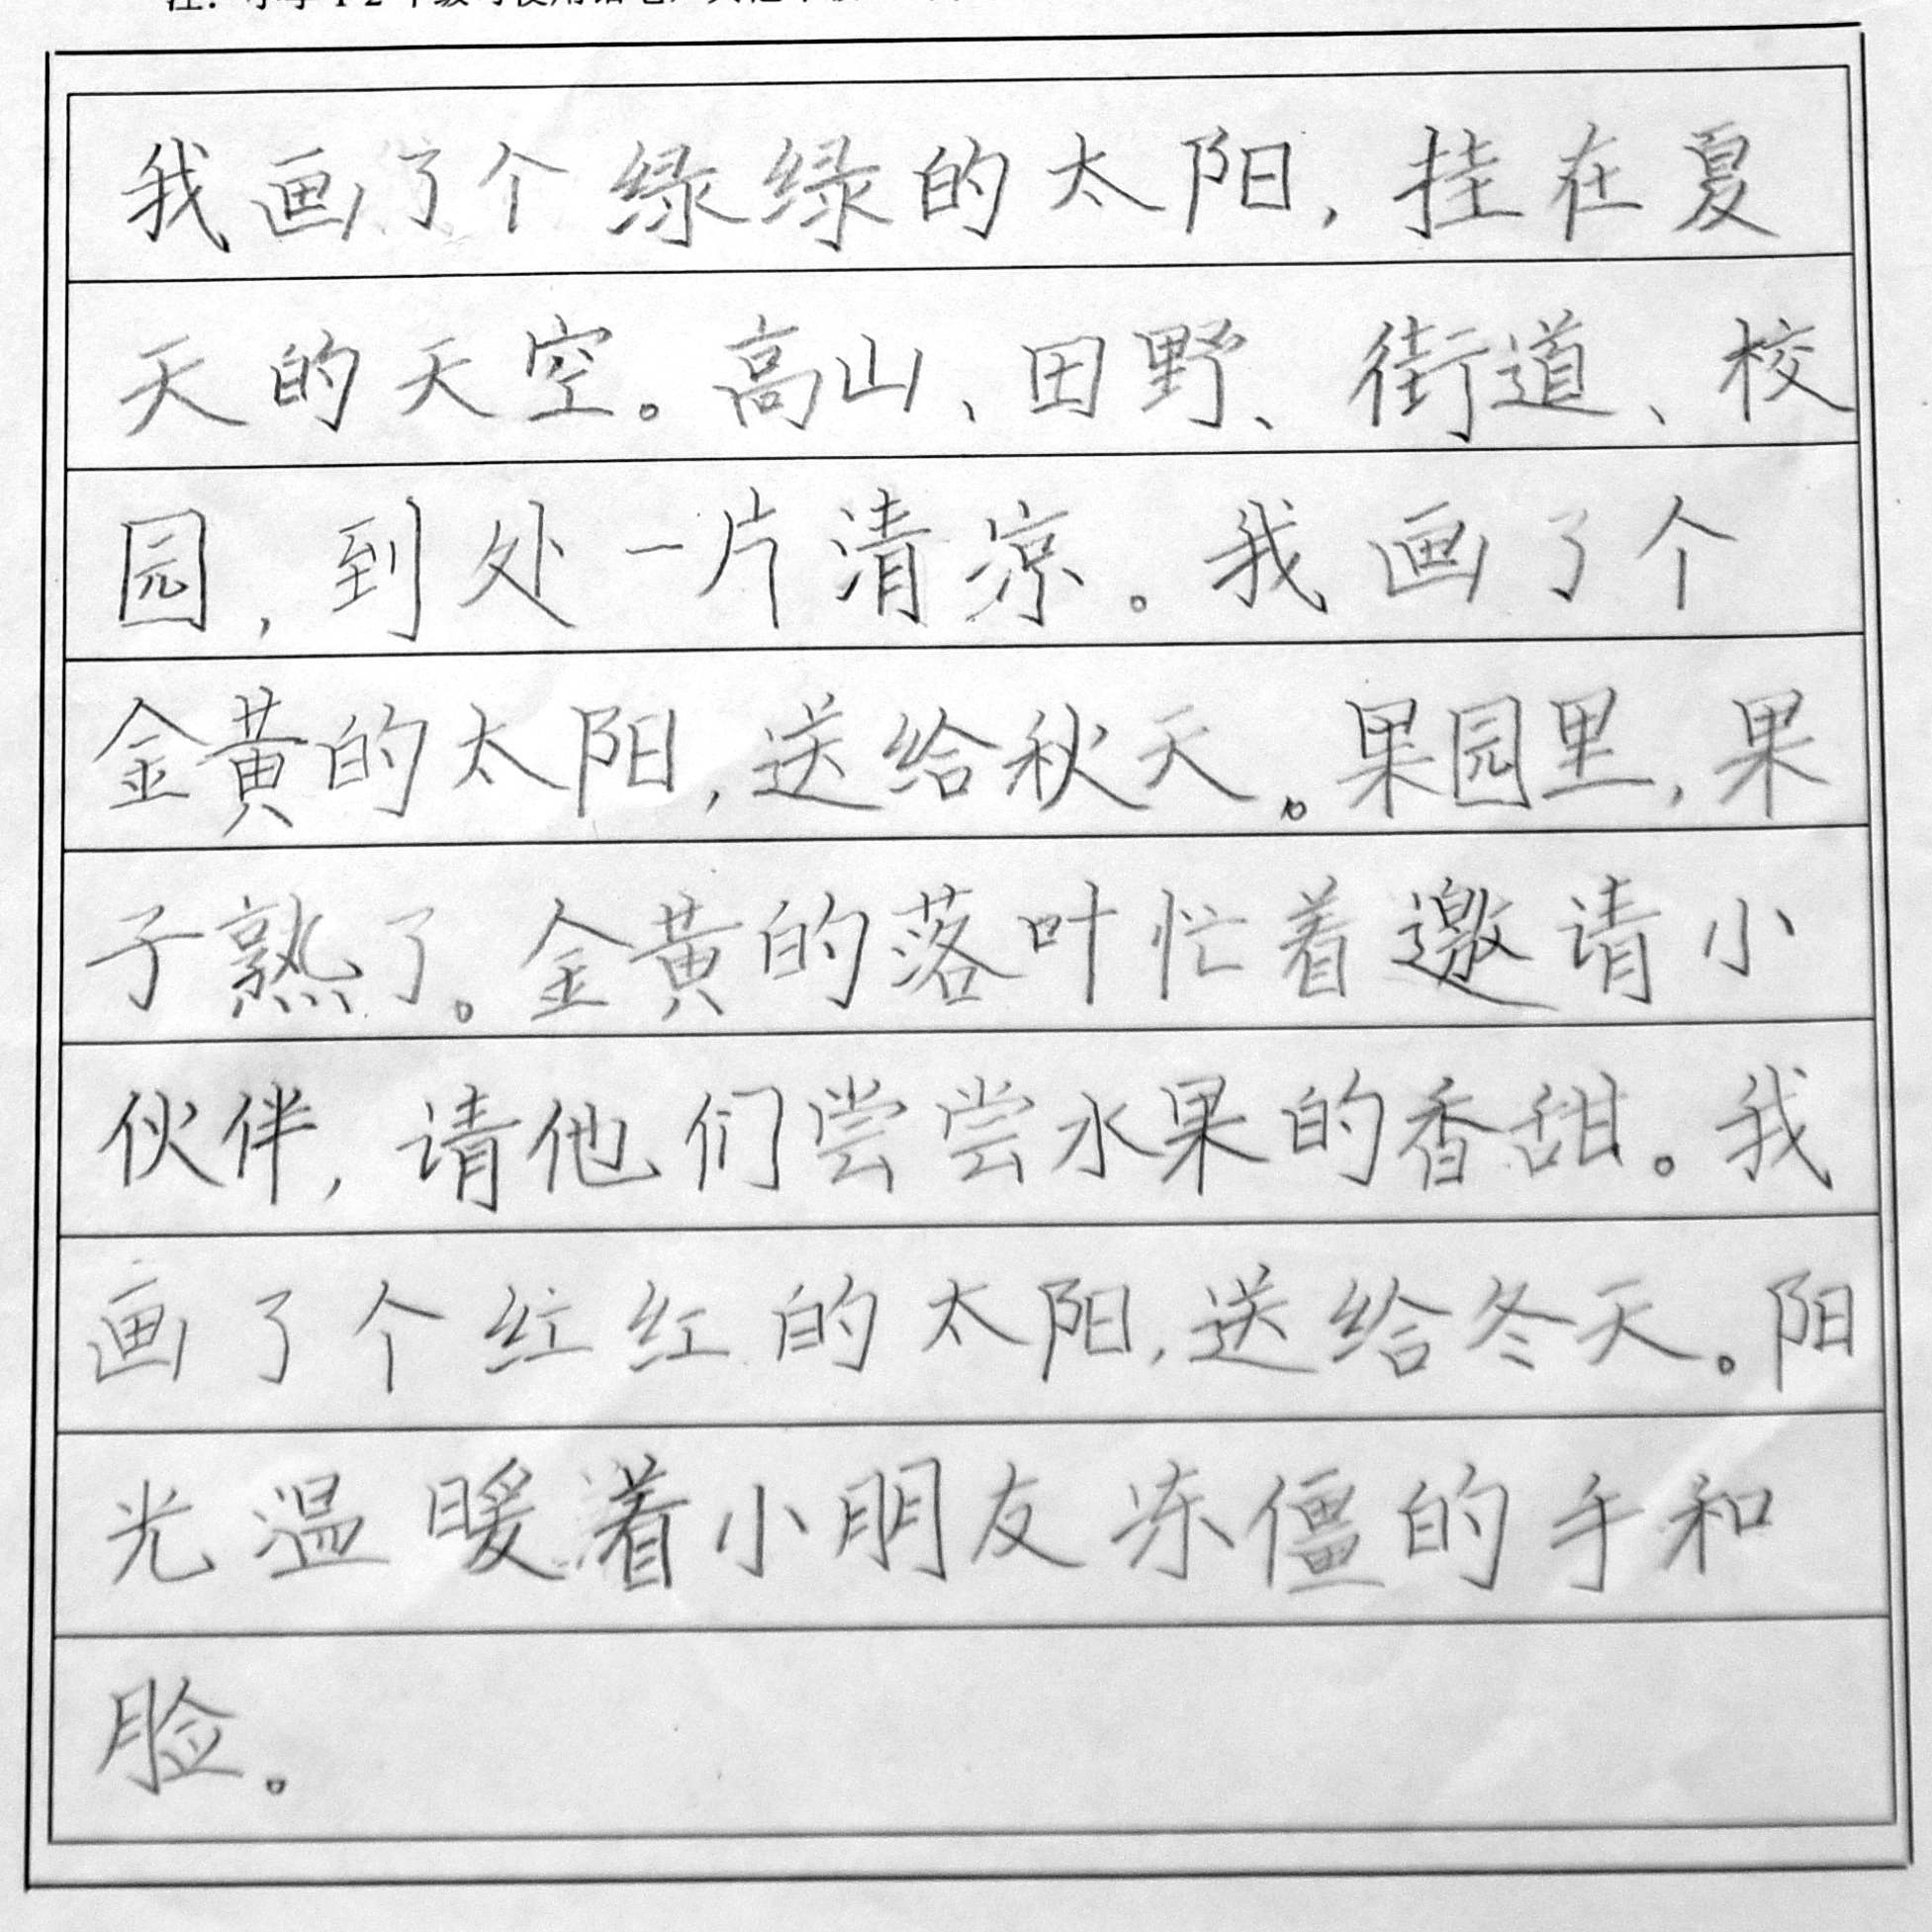 我画了个绿绿的太阳,挂在夏
天的天空。高山、田野、街道、校
园,到处一片清凉。我画了个
金黄的太阳,送给秋天。果园里,果
子熟了。金黄的落叶忙着邀请小
伙伴,请他们尝尝水果的香甜。我
画了个红红的太阳,送给冬天。阳
光温暖着小朋友冻僵的手和
脸。